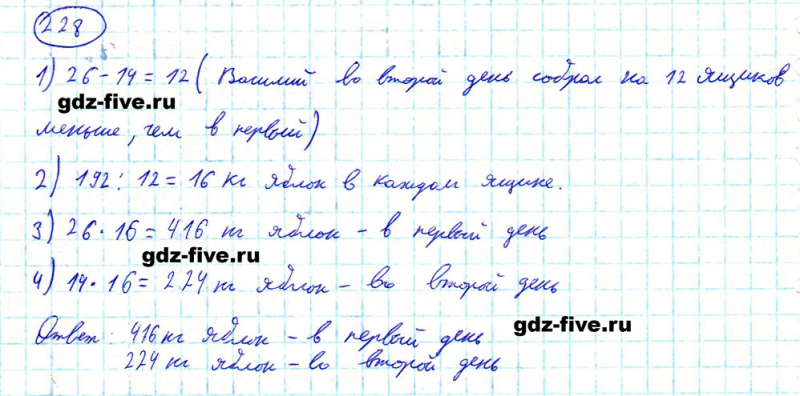 228
1) 26 - 14 = 12 (Василий во второй день собрал на 12 ящиков
gdz-five.ru
меньше, чем в первый)
2) 192 : 12 = 16 кг яблок в каждом ящике.
3) 26 · 16 = 416 кг яблок - в первый день
gdz-five.ru
4) 14 · 16 = 224 кг яблок - во второй день
gdz-five.ru
Ответ: 416 кг яблок - в первый день
224 кг яблок - во второй день